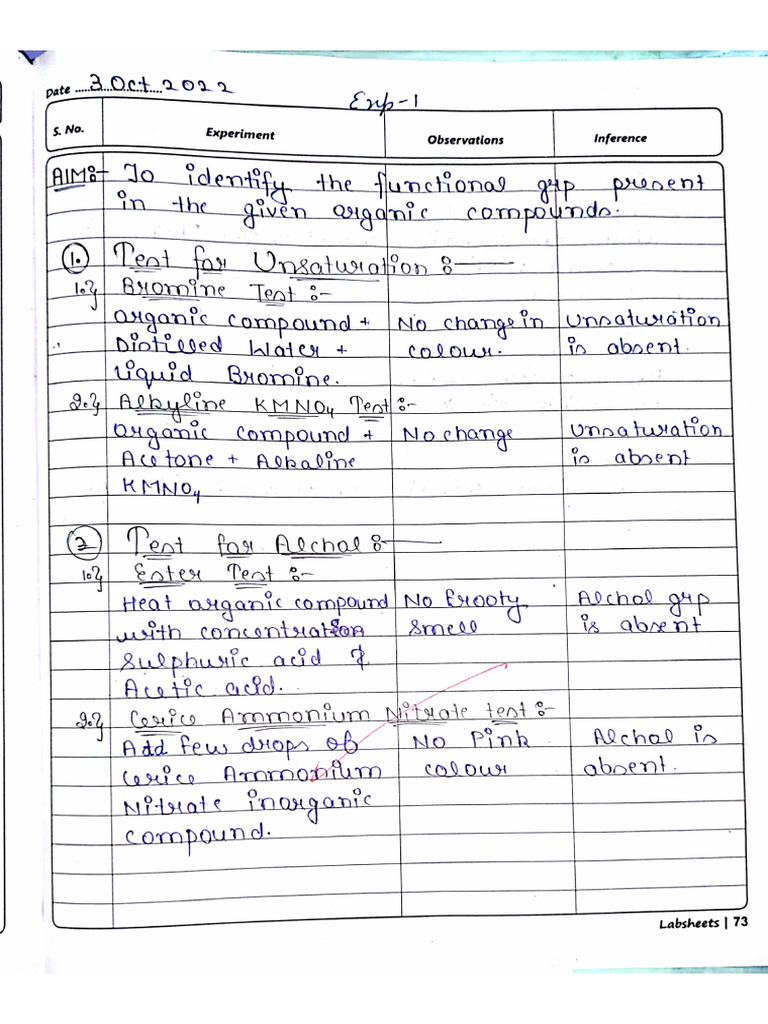 Date 3 Oct 2022
Exp-1
S. No. Experiment Observations Inference
AIM:- To identify the functional grp present
in the given organic compounds.
1. Test for Unsaturation :-
1.} Bromine Test :-
organic compound + No change in Unsaturation
Distilled Water + colour. is absent.
Liquid Bromine.
2.} Alkyline KMNO4 Test :-
organic compound + No change Unsaturation
Acetone + Alkaline is absent
KMNO4
2 Test for Alchol :-
1.} Ester Test :-
Heat organic compound No frooty Alchol grp
with concentration smell is absent
Sulphuric acid &
Acetic acid.
2.} Cerice Ammonium Nitrate test :-
Add few drops of No Pink Alchol is
Cerice Ammonium colour absent.
Nitrate inorganic
compound.
Labsheets | 73